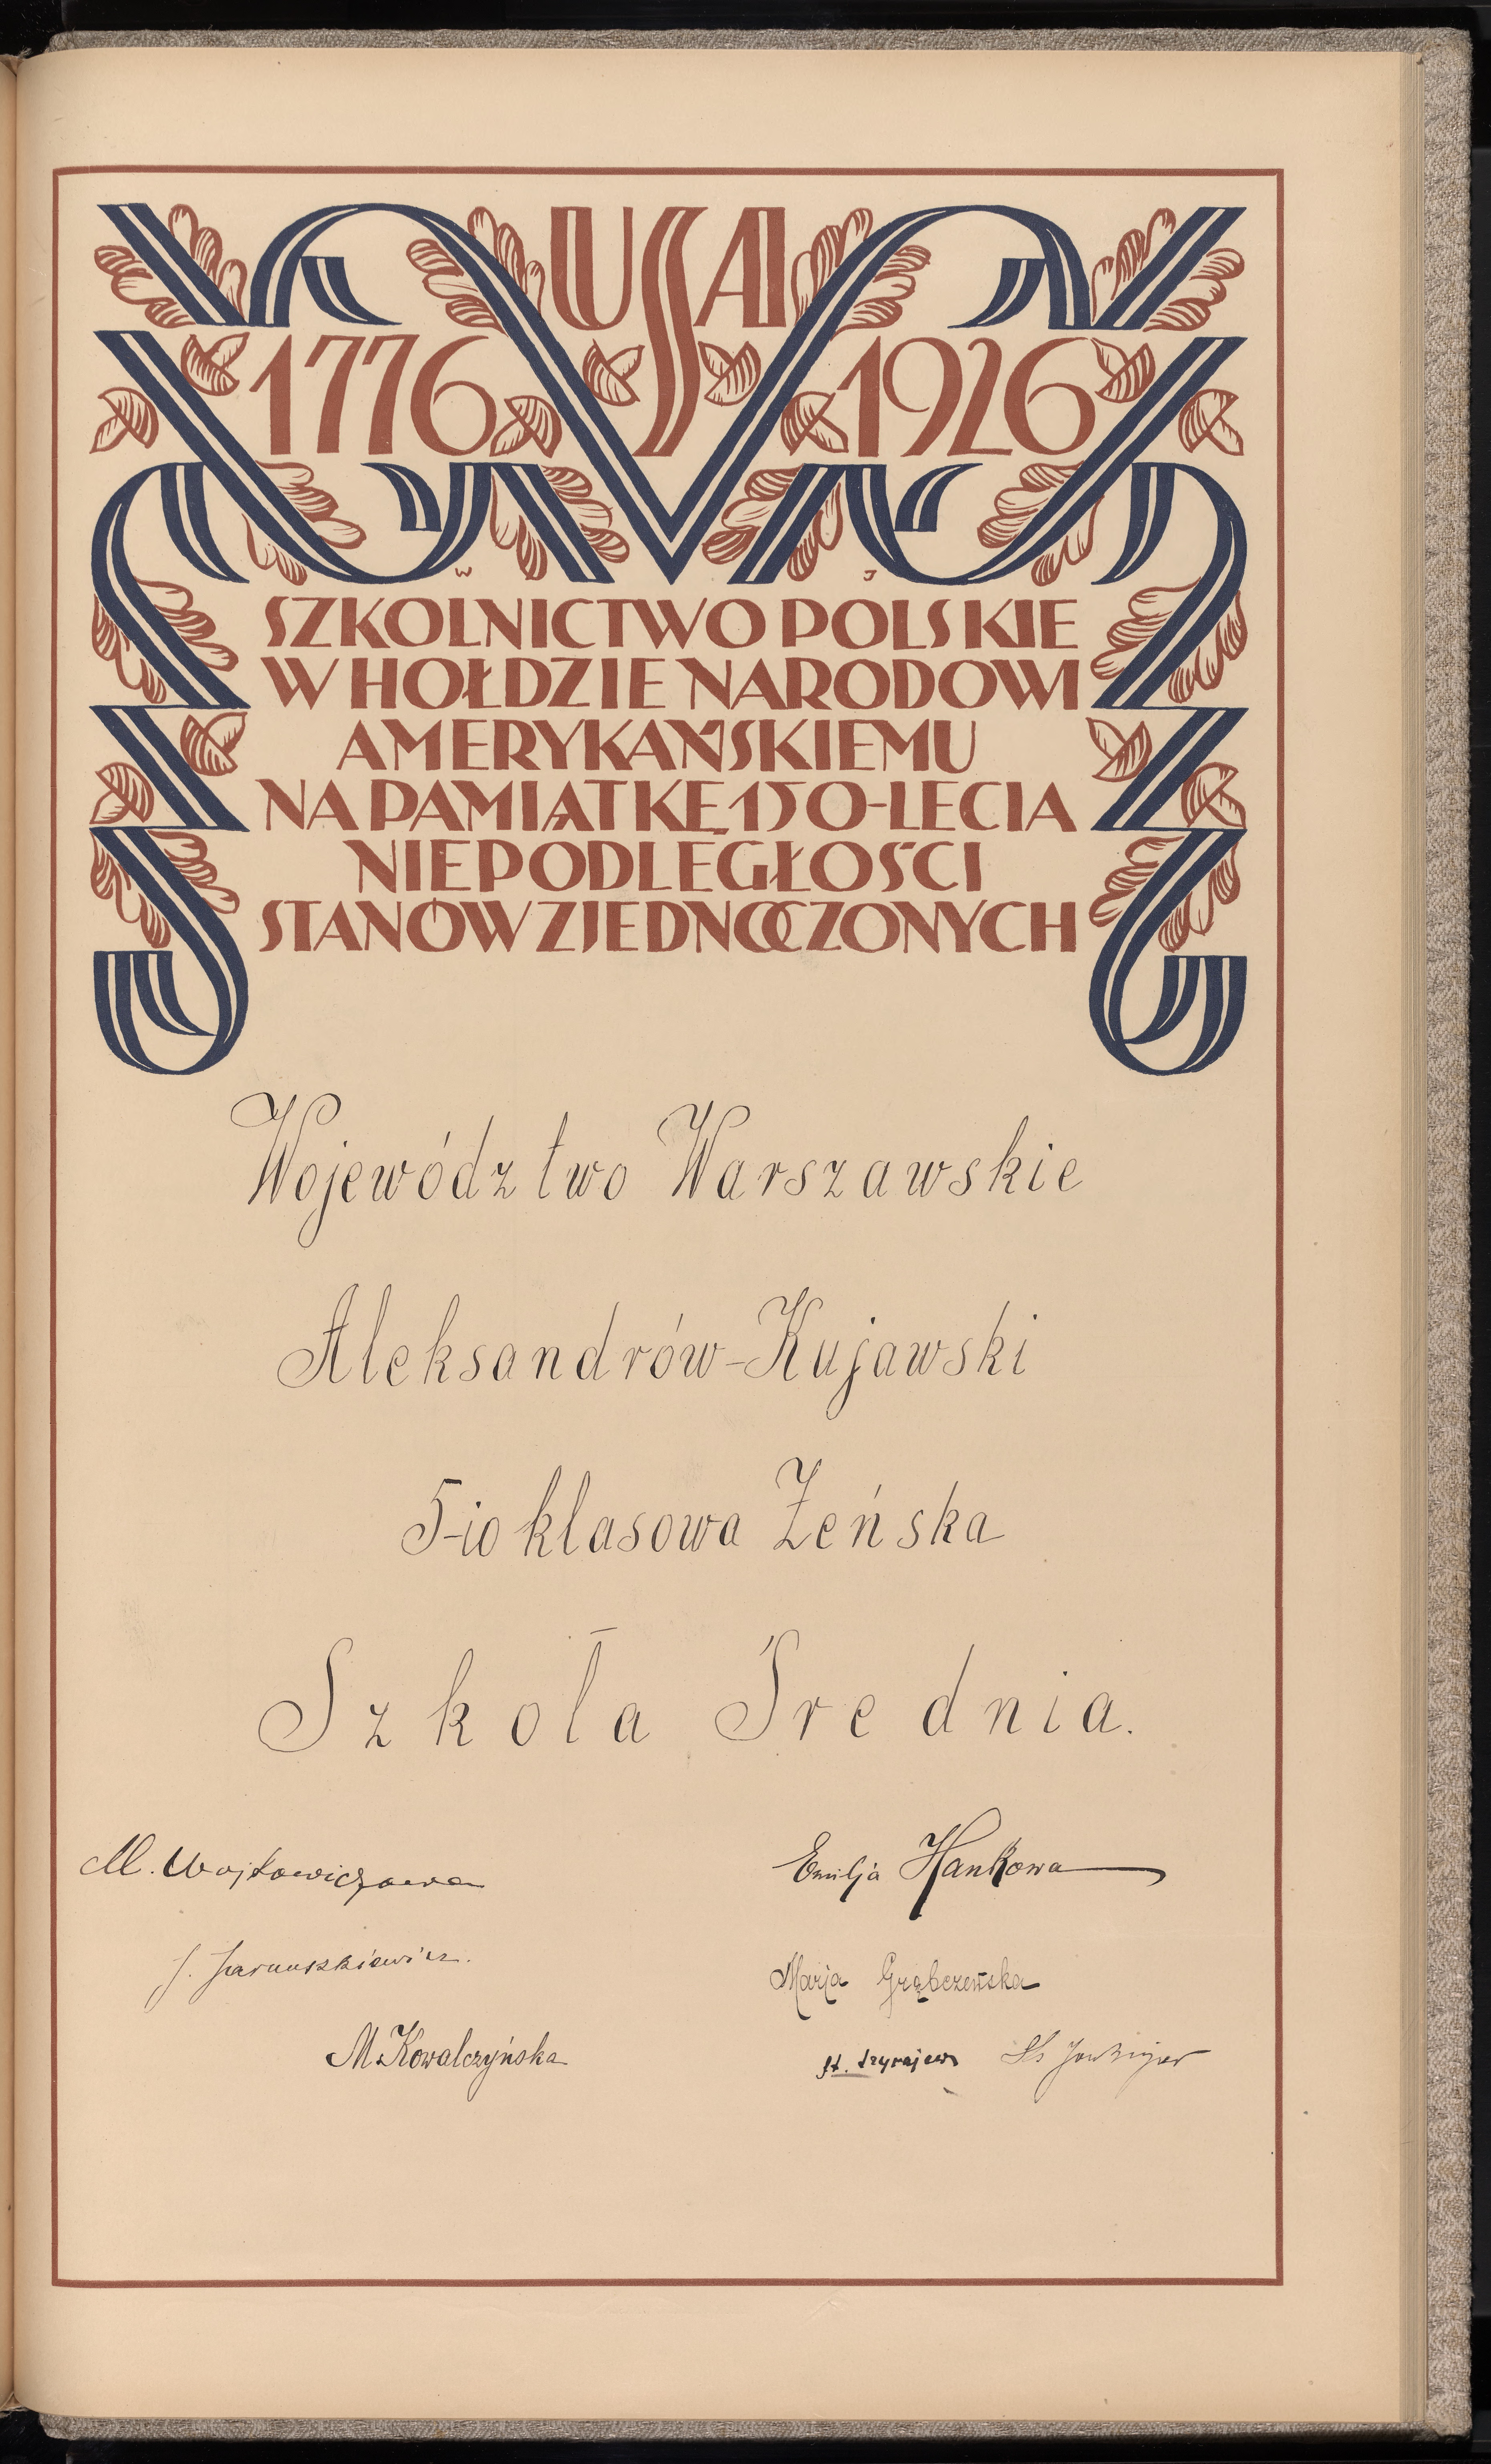 USA
1776 1926
W J
SZKOLNICTWO POLSKIE
W HOŁDZIE NARODOWI
AMERYKAŃSKIEMU
NA PAMIĄTKĘ 150-LECIA
NIEPODLEGŁOŚCI
STANÓW ZJEDNOCZONYCH
Województwo Warszawskie
Aleksandrów-Kujawski
5-io klasowa Żeńska
Szkoła Średnia.
M. Wojtkowiczowa
Emilja Hankowa
J. Jaruuszkiewicz.
Marja Grąbczewska
M. Kowalczyńska
St.